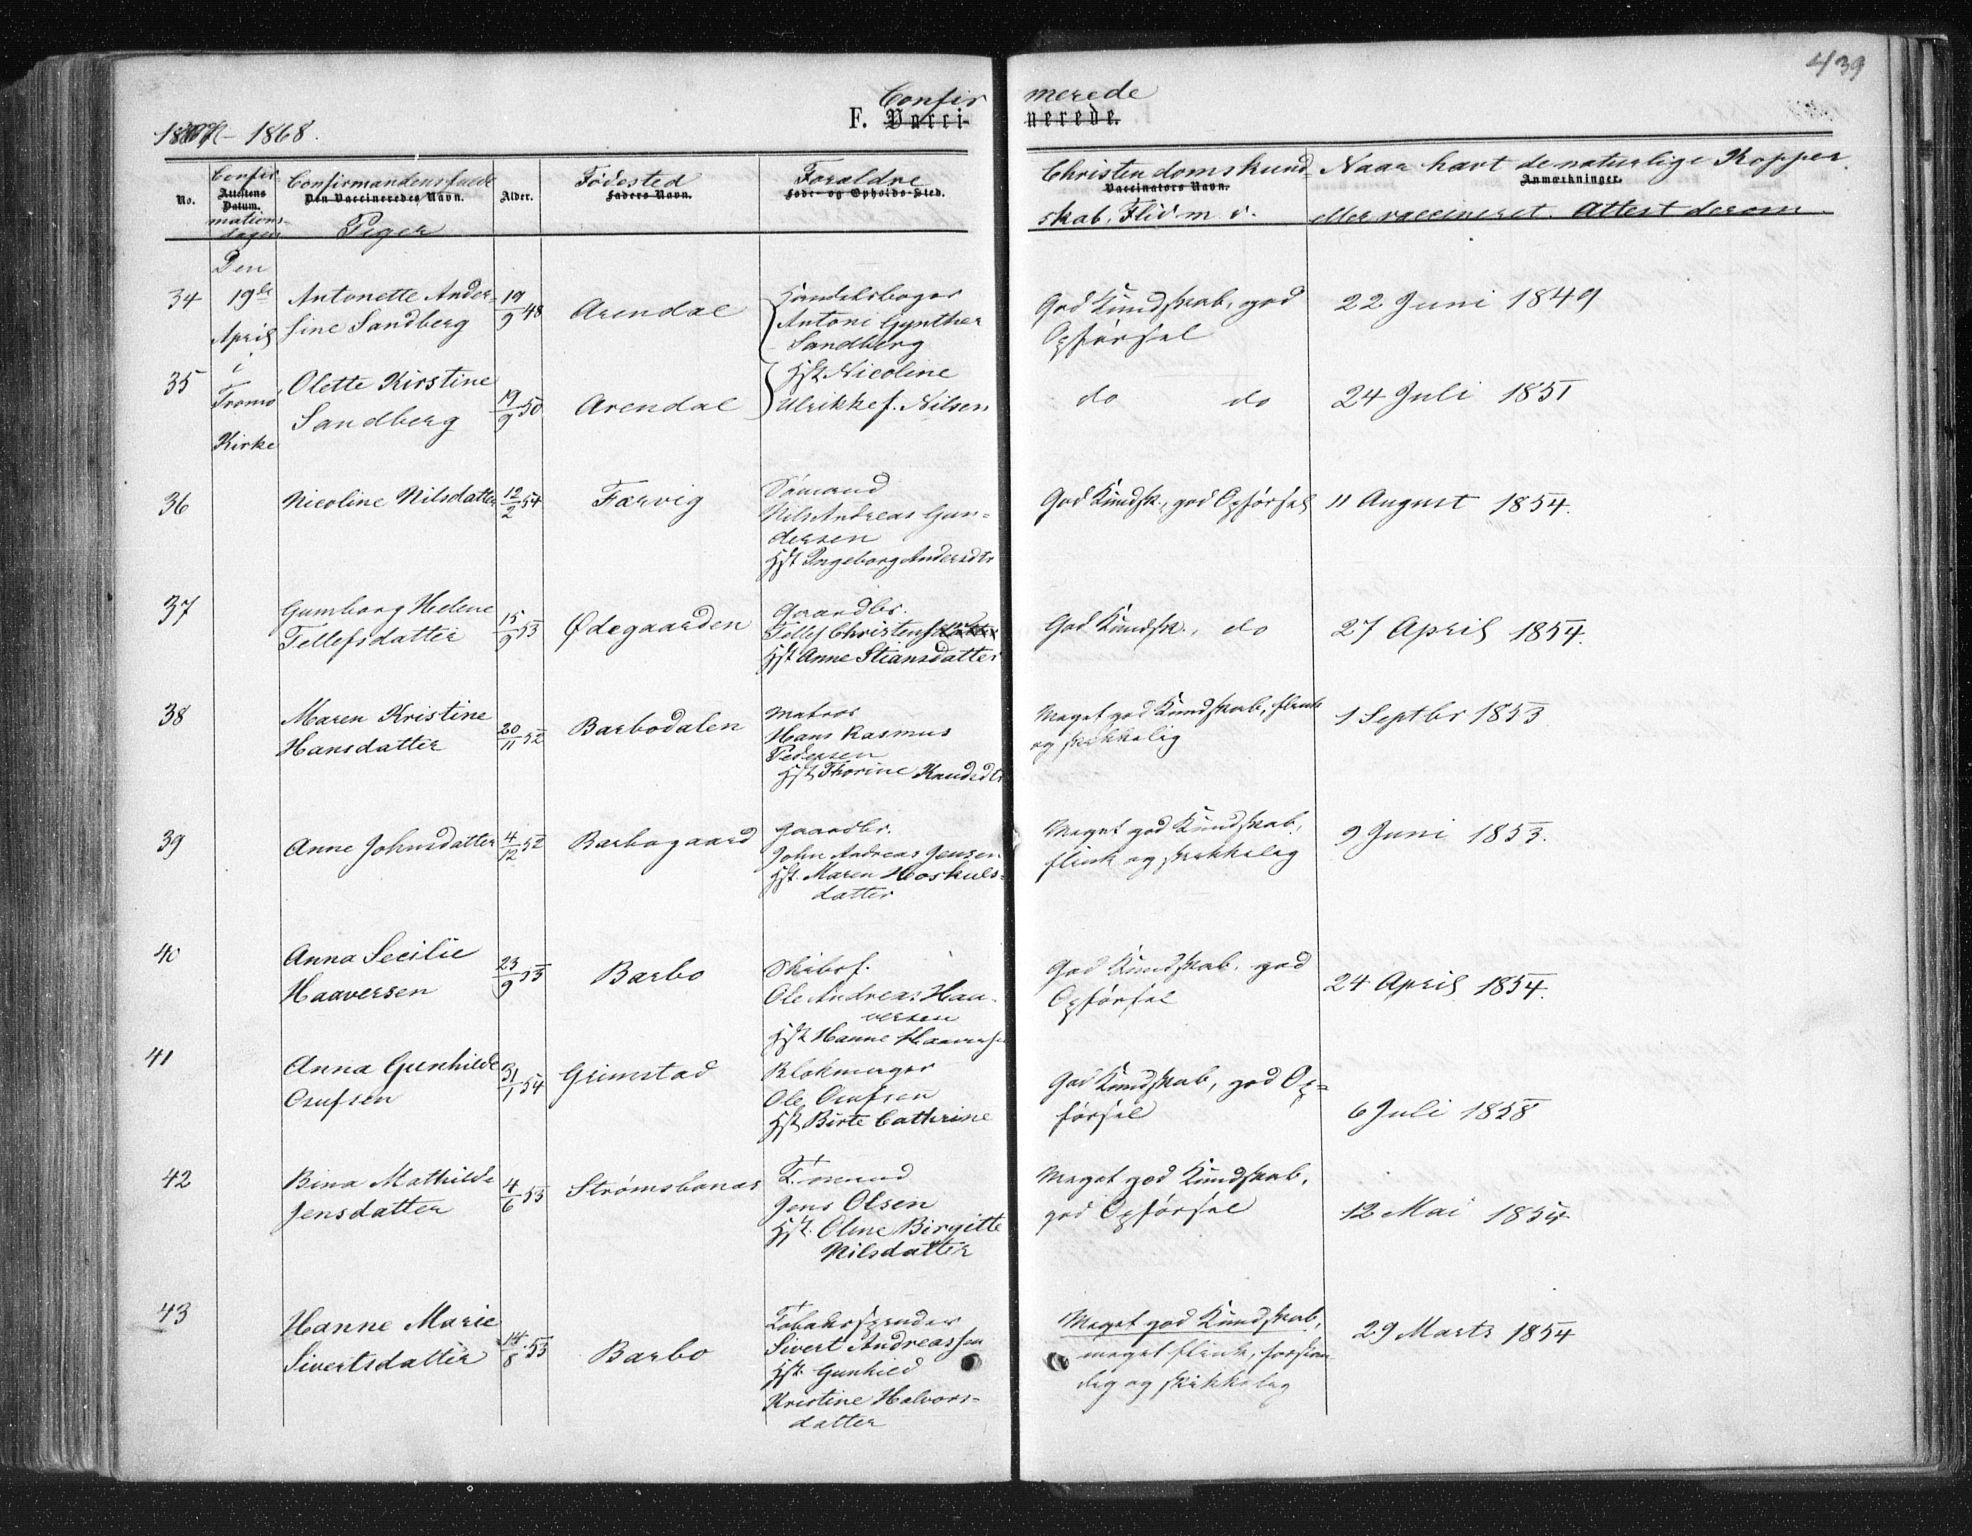 439
Confir merede
F. Vacci- nerede.
- 1868.
No.
Confir
Attestens
Datum.
mations-
dagen
Confirmandens fulde
Den Vaccineredes Navn.
Piger
Alder.
Fødested
Faders Navn.
Forældre
Føde- og Opholds-Sted.
Christendomskund
Vaccinators Navn.
skab, Flid m. v.
Naar havt de naturlige Kopper
Anmærkninger.
eller vaccineret. Attest derom
Den
19de
April
i
Tromø
Kirke
34
Antonette Ander-
sine Sandberg
19/9 48
Arendal
Handelsborger
Antoni Gynther
Sandberg
God Kundskab, god
Opførsel
22 Juni 1849
35
Olette Kirstine
Sandberg
19/9 50
Arendal
Hst. Nicoline
Ulrikke f. Nilsen
do do
24 Juli 1851
36
Nicoline Nilsdatter
12/2 54
Færvig
Sømand
Nils Andreas Gun-
dersen
Hst Ingeborg Andersdtr
God Kundsk., god Opførsel
11 August 1854.
37
Gumborg Helene
Tellefsdatter
15/9 53
Ødegaarden
Gaardbr.
Tellef Christens
Hst Anne Stiansdatter
God Kundsk., do
27 April 1854.
38
Maren Kristine
Hansdatter
20/11 52
Barbodalen
Matros
Hans Rasmus
Pedersen
Hst Thorine
Meget god Kundskab, flink
og skikkelig
1 Septbr 1853
39
Anne Johnsdatter
4/12 52
Barbogaard
Gaardbr.
John Andreas Jensen
Hst. Maren Hoskuls-
datter
Meget god Kundskab,
flink og skikkelig
9 Juni 1853.
40
Anna Secilie
Haaversen
23/9 53
Barbo
Skibsf.
Ole Andreas Haa-
versen
Hst Hanne
God Kundskab, god
Opførsel
24 April 1854.
41
Anna Gunhilde
Osufsen
31/1 54
Grimstad
Blokmager
Ole Osufsen
Hst Birte Cathrine
God Kundskab, god Op-
førsel
6 Juli 1858
42
Bina Mathilde
Jensdatter
4/6 53
Strømsbonas
Sømand
Jens Olsen
Hst. Oline Birgitte
Nilsdatter
Meget god Kundskab,
god Opførsel
12 Mai 1854
43
Hanne Marie
Sivertsdatter
14/8 53
Barbo
Tobaksspinder
Sivert Andreassen
Hst. Gunhild
Kristine Halvors-
datter
Meget god Kundskab,
meget flink, forstan-
dig og skikkelig
29 Marts 1854